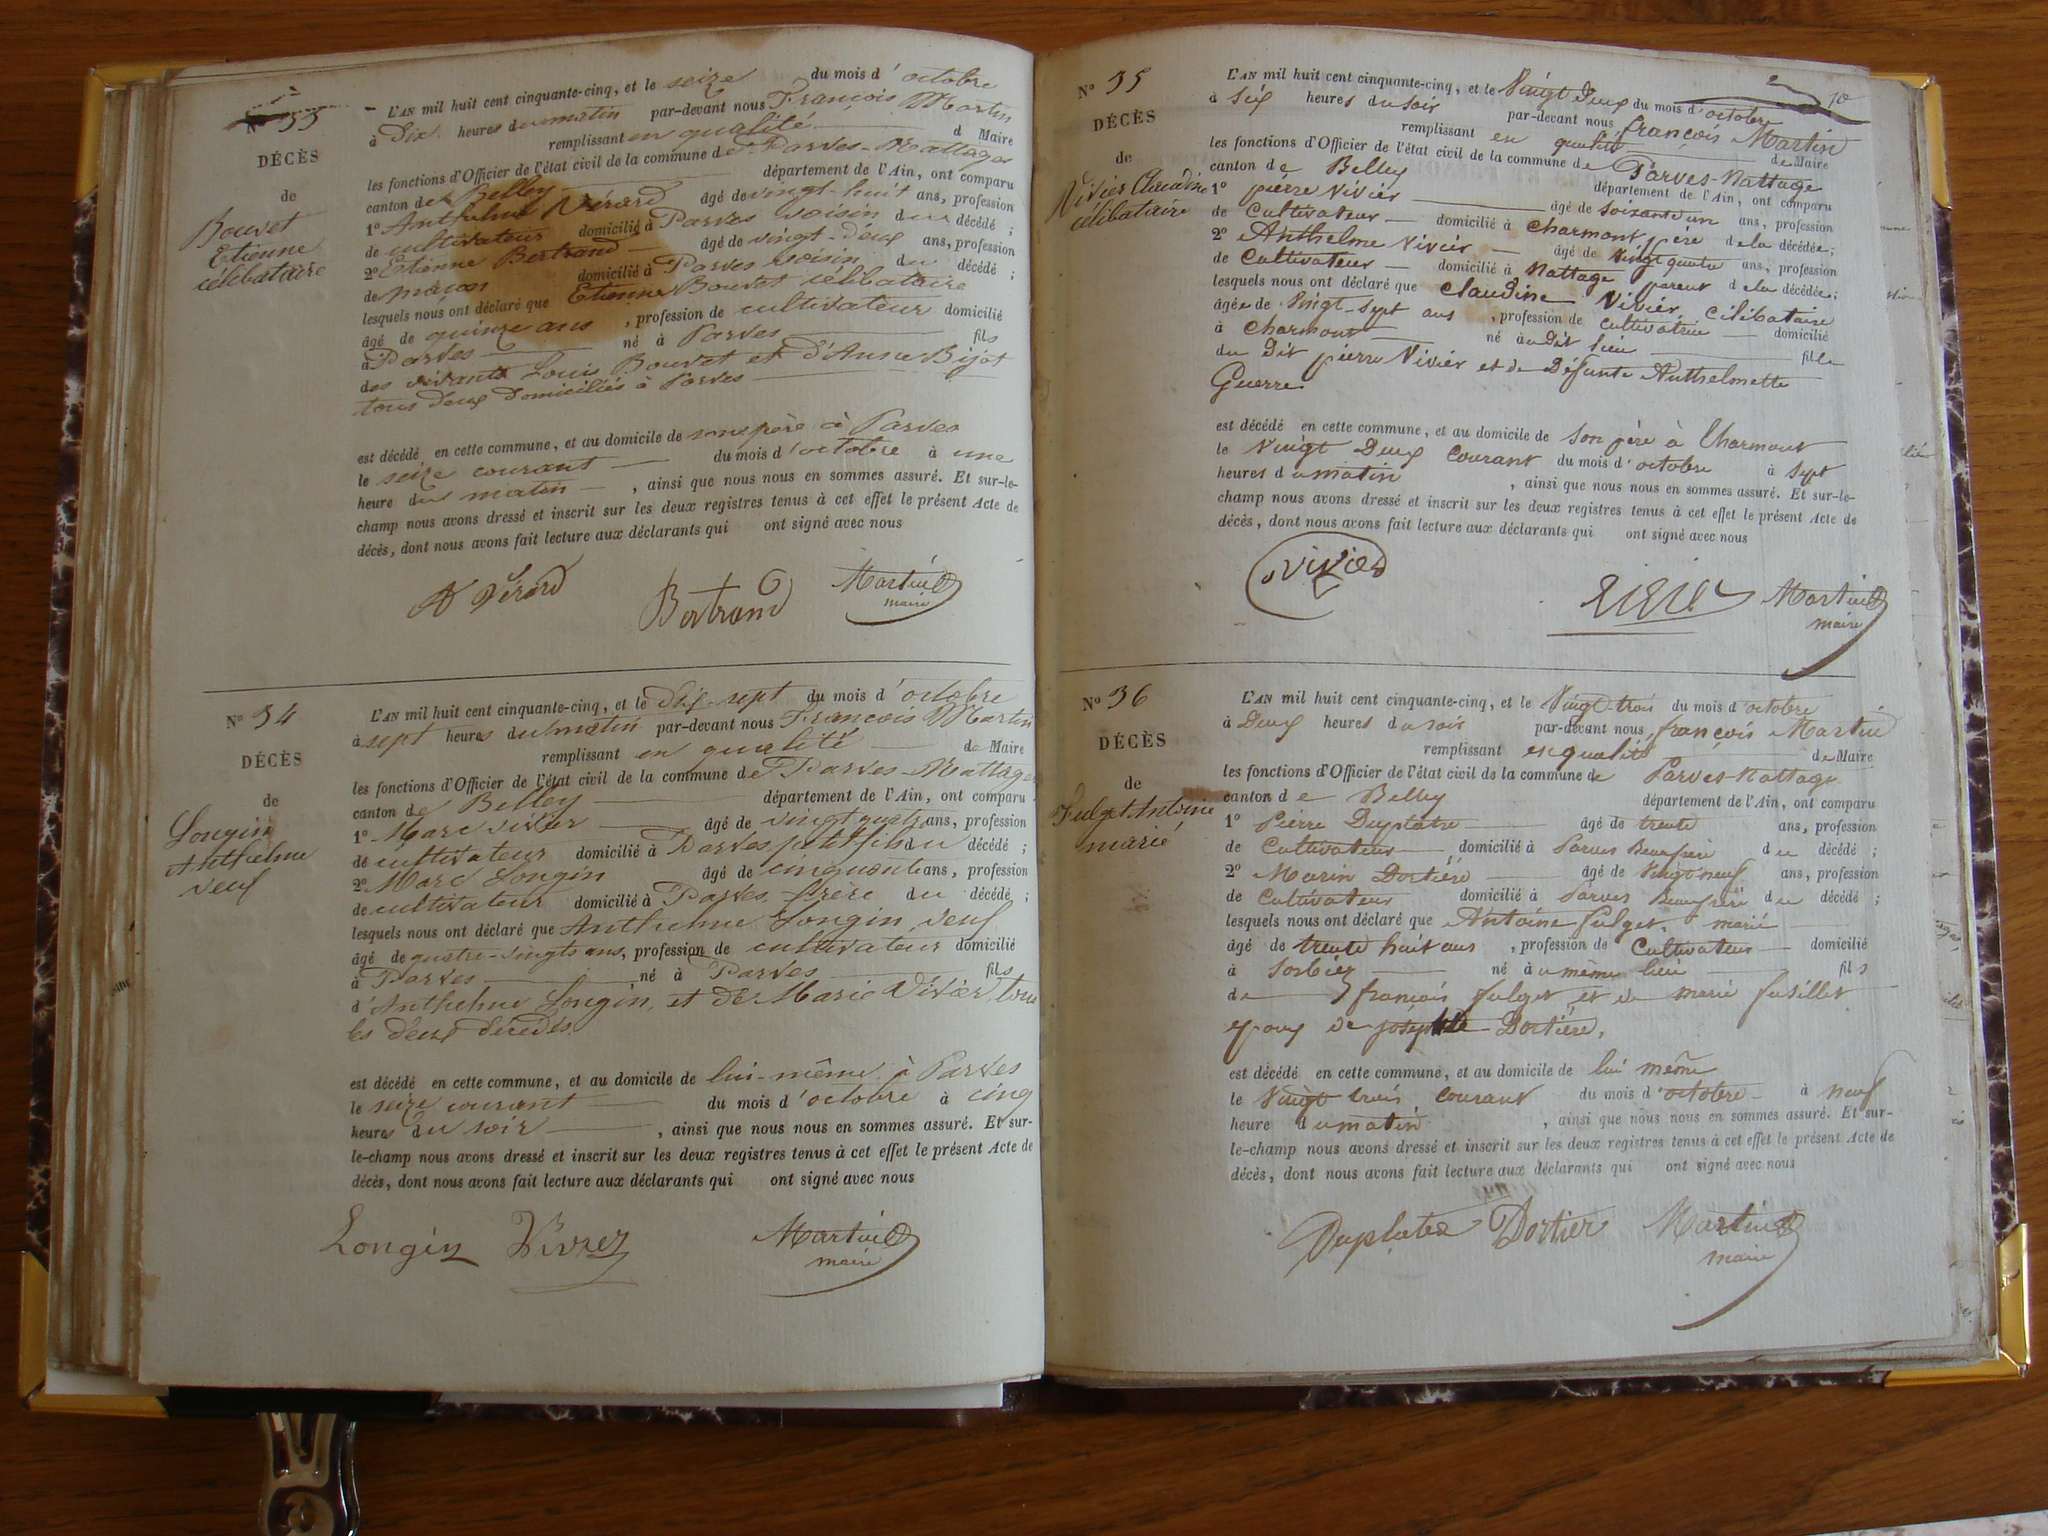 N° 33
DÉCÈS
de
Bouvet
Etienne
célibataire
L'AN mil huit cent cinquante-cinq, et le seize du mois d'octobre
à dix heures du matin par-devant nous François Martin
remplissant en qualité d Maire
les fonctions d'Officier de l'état civil de la commune de Parves-Nattages
canton de Belley département de l'Ain, ont comparu
1° Anthelme Vérard âgé de vingt-huit ans, profession
de cultivateur domicilié à Parves voisin du décédé ;
2° Etienne Bertrand âgé de vingt-deux ans, profession
de maçon domicilié à Parves voisin du décédé ;
lesquels nous ont déclaré que Etienne Bouvet célibataire
âgé de quinze ans , profession de cultivateur domicilié
à Parves né à Parves fils
des vivants Louis Bouvet et d'Anne Bijot
tous deux domiciliés à Parves
est décédé en cette commune, et au domicile de son père à Parves
le seize courant du mois d'octobre à une
heure du matin , ainsi que nous nous en sommes assuré. Et sur-le-
champ nous avons dressé et inscrit sur les deux registres tenus à cet effet le présent Acte de
décès, dont nous avons fait lecture aux déclarants qui ont signé avec nous
A Vérard Bertrand Martin
maire
N° 34
DÉCÈS
de
Longin
Anthelme
veuf
L'AN mil huit cent cinquante-cinq, et le dix-sept du mois d'octobre
à sept heures du matin par-devant nous François Martin
remplissant en qualité de Maire
les fonctions d'Officier de l'état civil de la commune de Parves-Nattages
canton de Belley département de l'Ain, ont comparu
1° Marc Vivier âgé de vingt quatre ans, profession
de cultivateur domicilié à Parves petit fils du décédé ;
2° Marc Longin âgé de cinquante ans, profession
de cultivateur domicilié à Parves frère du décédé ;
lesquels nous ont déclaré que Anthelme Longin veuf
âgé de quatre-vingts ans, profession de cultivateur domicilié
à Parves né à Parves fils
d'Anthelme Longin, et de Marie Vivier, tous
les deux décédés.
est décédé en cette commune, et au domicile de lui-même à Parves
le seize courant du mois d'octobre à cinq
heures du soir , ainsi que nous nous en sommes assuré. Et sur-
le-champ nous avons dressé et inscrit sur les deux registres tenus à cet effet le présent Acte de
décès, dont nous avons fait lecture aux déclarants qui ont signé avec nous
Longin Vivier Martin
maire
N° 35
DÉCÈS
de
Vivier Claudine
célibataire
L'AN mil huit cent cinquante-cinq, et le Vingt Deux du mois d'octobre
à six heures du soir par-devant nous françois Martin
remplissant en qualité de Maire
les fonctions d'Officier de l'état civil de la commune de Parves-Nattage
canton de Belley département de l'Ain, ont comparu
1° pierre Vivier âgé de soixante un ans, profession
de Cultivateur domicilié à Charmont père de la décédée ;
2° Anthelme Vivier âgé de Vingt quatre ans, profession
de Cultivateur domicilié à Nattage parent de la décédée ;
lesquels nous ont déclaré que Claudine Vivier célibataire
âgée de Vingt-sept ans , profession de cultivatrice domicilié
à Charmont né au Dit lieu fille
du Dit pierre Vivier et de Défunte Anthelmette
Guerre
est décédé en cette commune, et au domicile de son père à Charmont
le Vingt Deux courant du mois d'octobre à sept
heures du matin , ainsi que nous nous en sommes assuré. Et sur-le-
champ nous avons dressé et inscrit sur les deux registres tenus à cet effet le présent Acte de
décès, dont nous avons fait lecture aux déclarants qui ont signé avec nous
Vivier Martin
maire
N° 36
DÉCÈS
de
Fulget Antoine
marié
L'AN mil huit cent cinquante-cinq, et le Vingt trois du mois d'octobre
à Deux heures du soir par-devant nous françois Martin
remplissant en qualité de Maire
les fonctions d'Officier de l'état civil de la commune de Parves-Nattage
canton de Belley département de l'Ain, ont comparu
1° Pierre Duplatre âgé de trente ans, profession
de Cultivateur domicilié à Parves Beaufrère du décédé ;
2° Marin Dortière âgé de Vingt neuf ans, profession
de Cultivateur domicilié à Parves Beaufrère du décédé ;
lesquels nous ont déclaré que Antoine fulget, marié
âgé de trente huit ans , profession de Cultivateur domicilié
à Sorbier né au même lieu fils
de françois fulget et de marie fusillet
epoux de Dortière,
est décédé en cette commune, et au domicile de lui même
le Vingt trois courant du mois d'octobre à neuf
heure du matin , ainsi que nous nous en sommes assuré. Et sur-
le-champ nous avons dressé et inscrit sur les deux registres tenus à cet effet le présent Acte de
décès, dont nous avons fait lecture aux déclarants qui ont signé avec nous
Duplatre Dortier Martin
maire